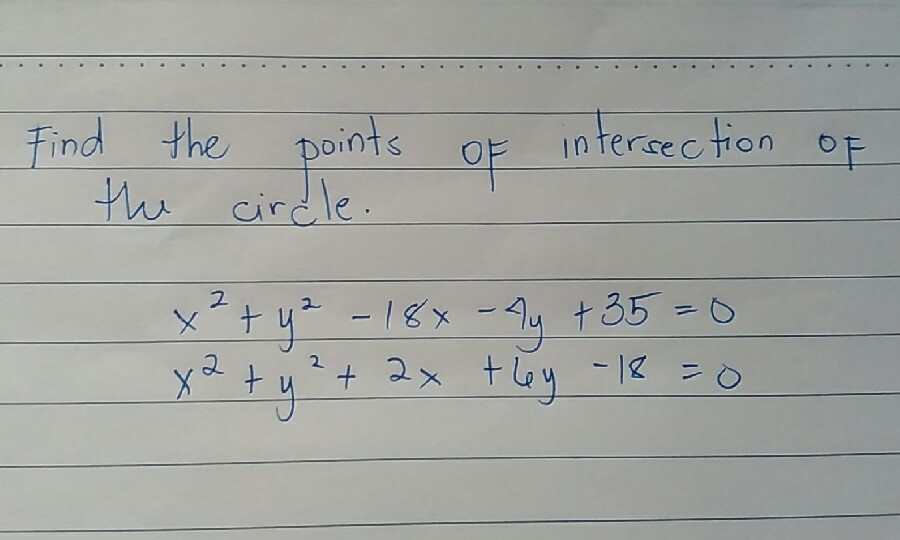 Find the points of intersection of
the circle.
x² + y² - 18x - 4y + 35 = 0
x² + y² + 2x + 6y - 18 = 0